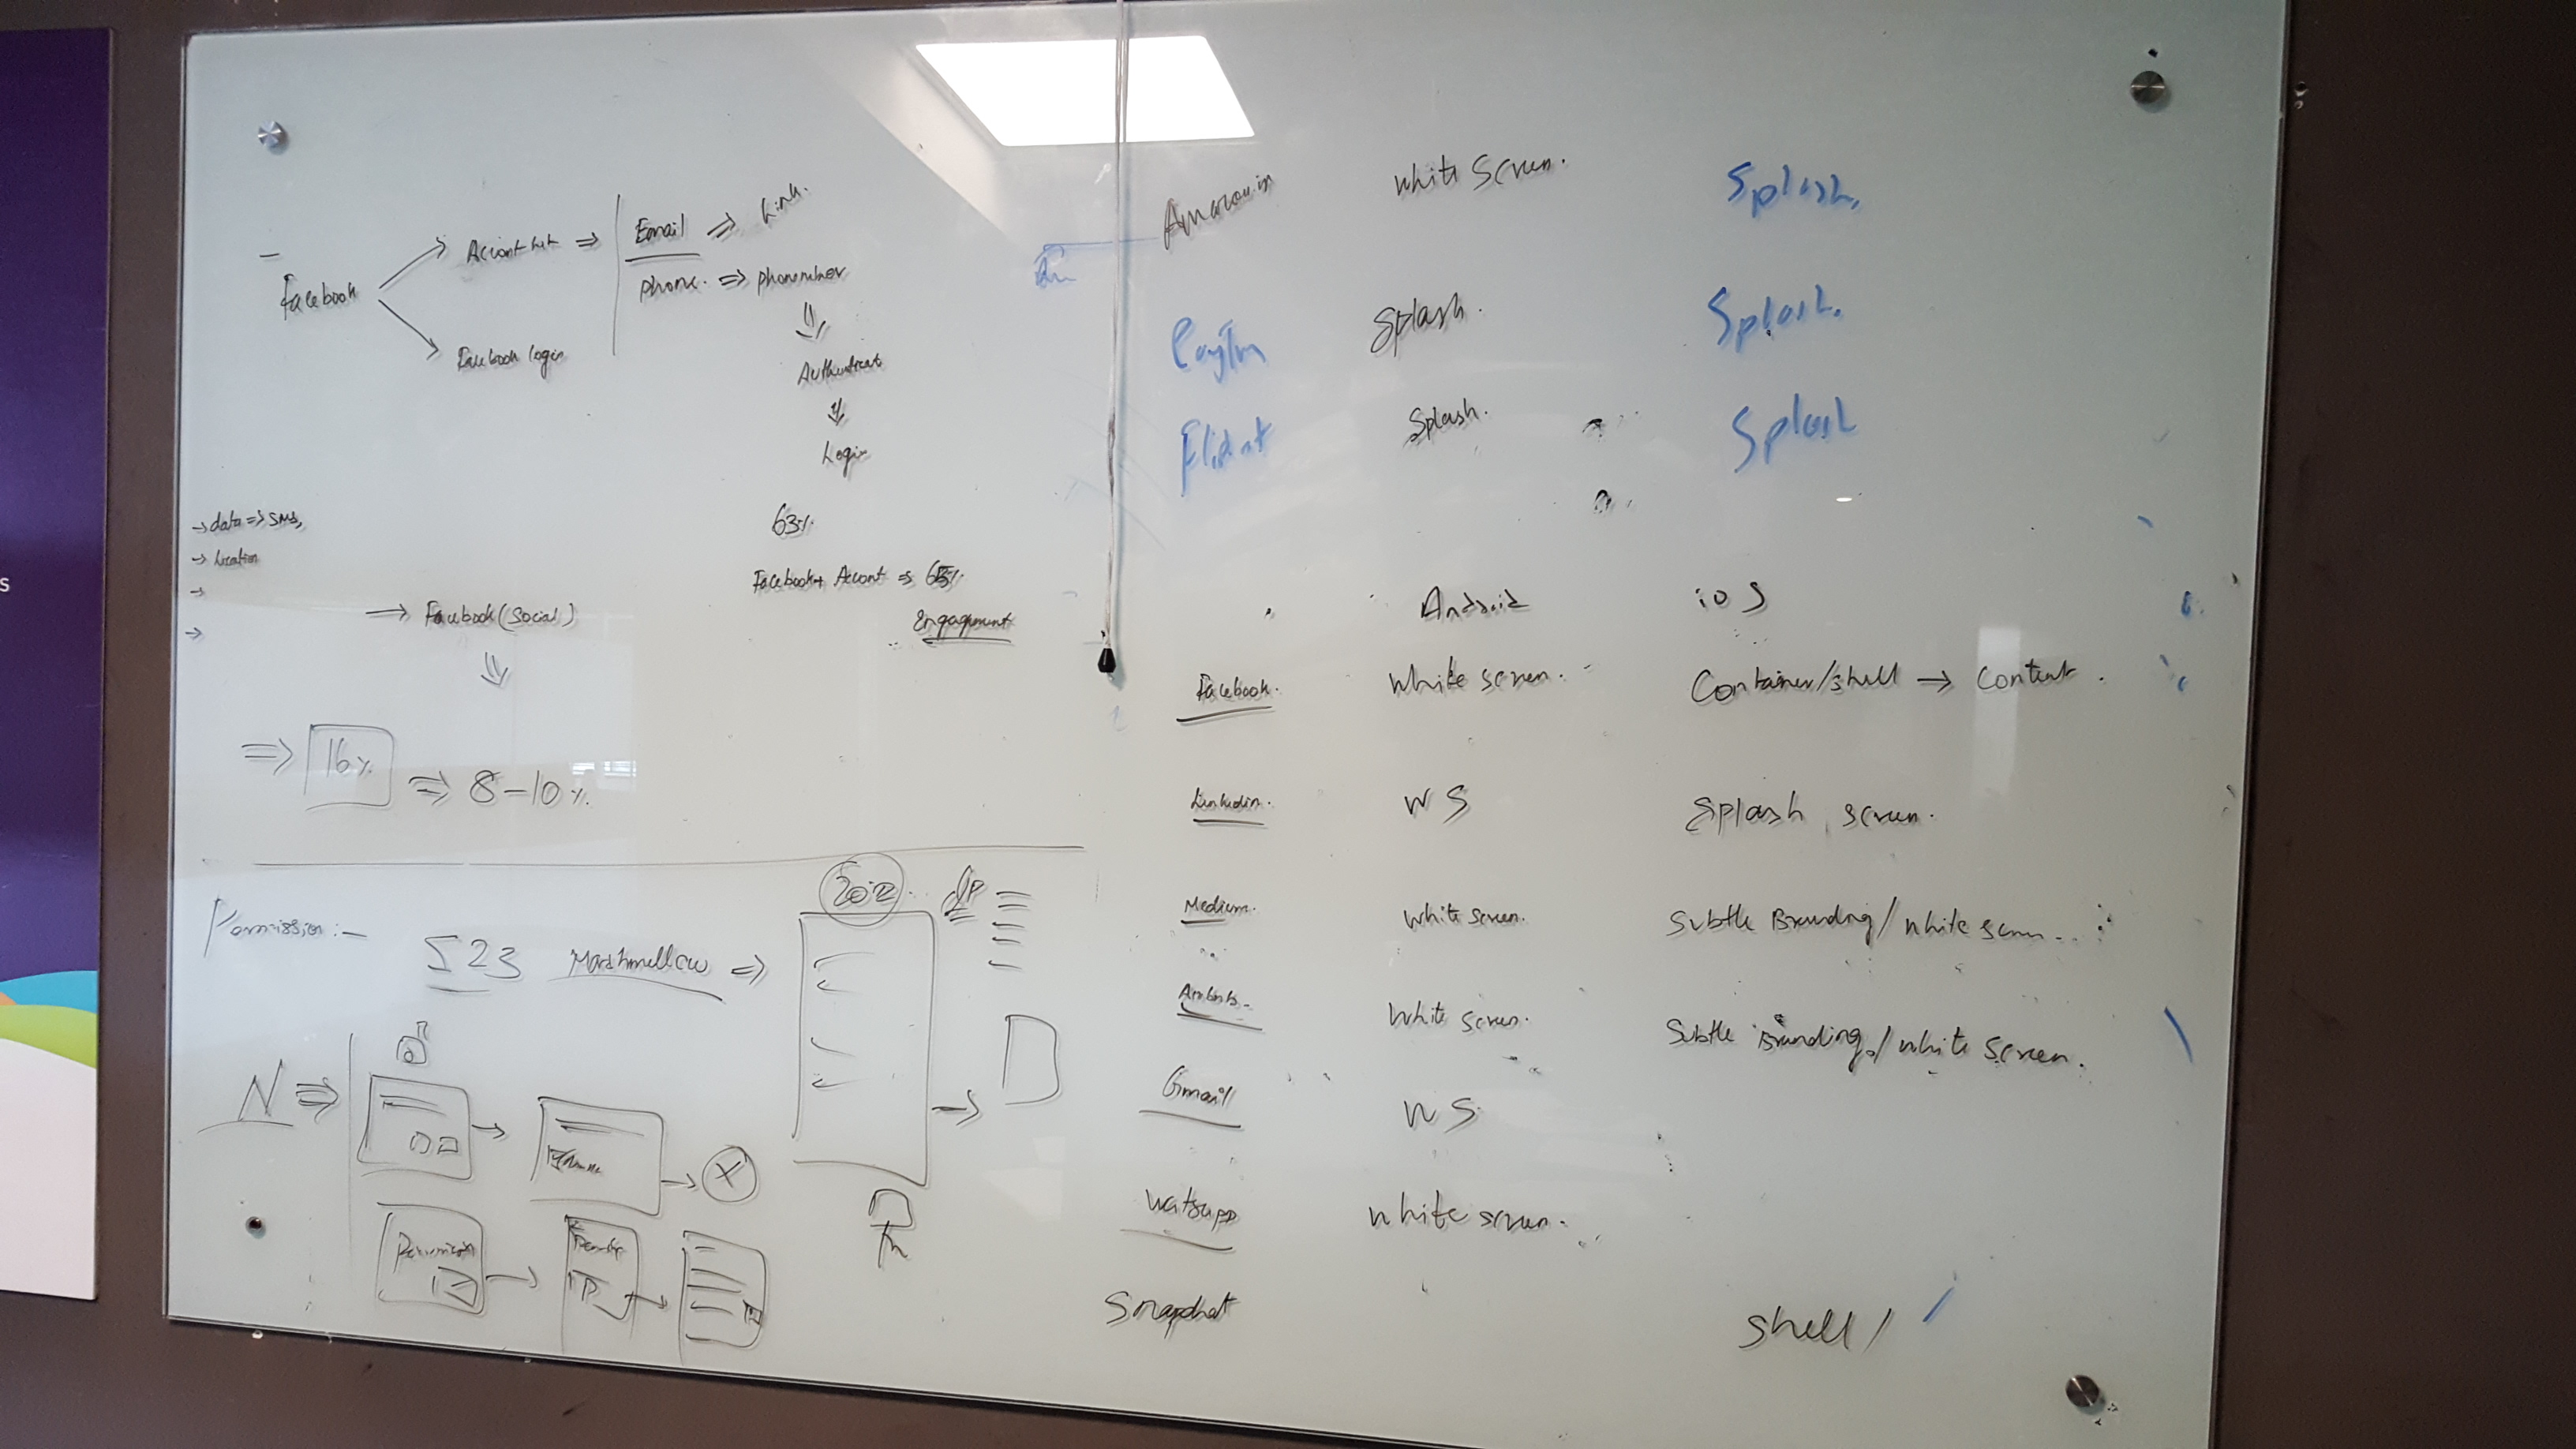 Facebook
Account kit ⇒
Email ⇒ Link.
phone. ⇒ phonenumber
Facebook login
Authenticat
Login
→ data ⇒ SMS,
→ Location
→
→
63%
Facebook + Account ⇒ 65%
Engagement
→ Facebook (Social)
⇒ 16% ⇒ 8-10%.
Permission :-
23 Marshmellow ⇒
N ⇒
Permission
Amazon.in White Screen. Splash.
PayTm Splash. Splash.
Splash. Splash
Android iOS
Facebook. White screen. Container/shell → Content.
Linkedin. WS Splash screen.
Medium. White screen. Subtle Branding/White screen..
White screen. Subtle Branding/White screen.
Gmail WS
Watsapp White screen.
Snapchat shell /